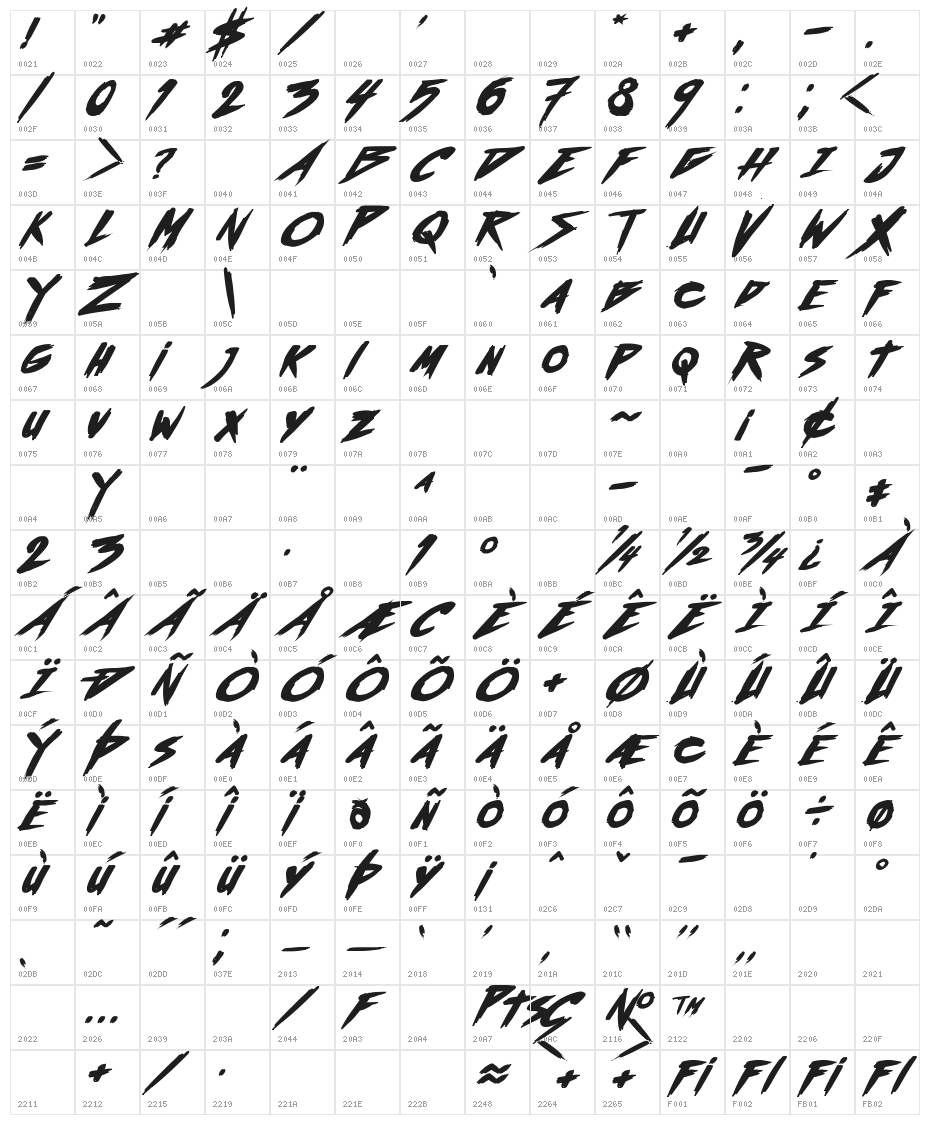 ! " # $ / ' * + , - .
0021 0022 0023 0024 0025 0026 0027 0028 0029 002A 002B 002C 002D 002E
/ 0 1 2 3 4 5 6 7 8 9 : ; <
002F 0030 0031 0032 0033 0034 0035 0036 0037 0038 0039 003A 003B 003C
= > ? A B C D E F G H I J
003D 003E 003F 0040 0041 0042 0043 0044 0045 0046 0047 0048 0049 004A
K L M N O P Q R S T U V W X
004B 004C 004D 004E 004F 0050 0051 0052 0053 0054 0055 0056 0057 0058
Y Z \ ` A B C D E F
0059 005A 005B 005C 005D 005E 005F 0060 0061 0062 0063 0064 0065 0066
G H i J K l M N O P Q R S T
0067 0068 0069 006A 006B 006C 006D 006E 006F 0070 0071 0072 0073 0074
U V W X Y Z ~ ¡ ¢
0075 0076 0077 0078 0079 007A 007B 007C 007D 007E 00A0 00A1 00A2 00A3
Y ¨ A - ¯ °
00A4 00A5 00A6 00A7 00A8 00A9 00AA 00AB 00AC 00AD 00AE 00AF 00B0 00B1
2 3 · 1 º ¼ ½ ¾ ¿ À
00B2 00B3 00B5 00B6 00B7 00B8 00B9 00BA 00BB 00BC 00BD 00BE 00BF 00C0
Á Â Ã Ä Å Æ C È É Ê Ë Ì Í Î
00C1 00C2 00C3 00C4 00C5 00C6 00C7 00C8 00C9 00CA 00CB 00CC 00CD 00CE
Ï Ð Ñ Ò Ó Ô Õ Ö + Ø Ù Ú Û Ü
00CF 00D0 00D1 00D2 00D3 00D4 00D5 00D6 00D7 00D8 00D9 00DA 00DB 00DC
Ý Þ S À Á Â Ã Ä Å Æ C È É Ê
00DD 00DE 00DF 00E0 00E1 00E2 00E3 00E4 00E5 00E6 00E7 00E8 00E9 00EA
Ë ì í î ï ð Ñ Ò Ó Ô Õ Ö ÷ Ø
00EB 00EC 00ED 00EE 00EF 00F0 00F1 00F2 00F3 00F4 00F5 00F6 00F7 00F8
Ù Ú Û Ü Ý Þ Ÿ ı ˆ ˇ ˉ ˘ ˙ ˚
00F9 00FA 00FB 00FC 00FD 00FE 00FF 0131 02C6 02C7 02C9 02D8 02D9 02DA
˛ ˜ ˝ ; – — ‘ ’ ‚ “ ” „
02DB 02DC 02DD 037E 2013 2014 2018 2019 201A 201C 201D 201E 2020 2021
… / F Pts C № ™
2022 2026 2039 203A 2044 20A3 20A4 20A7 20AC 2116 2122 2202 2206 220F
+ / · ≈ + + Fi Fl Fi Fl
2211 2212 2215 2219 221A 221E 222B 2248 2264 2265 F001 F002 FB01 FB02